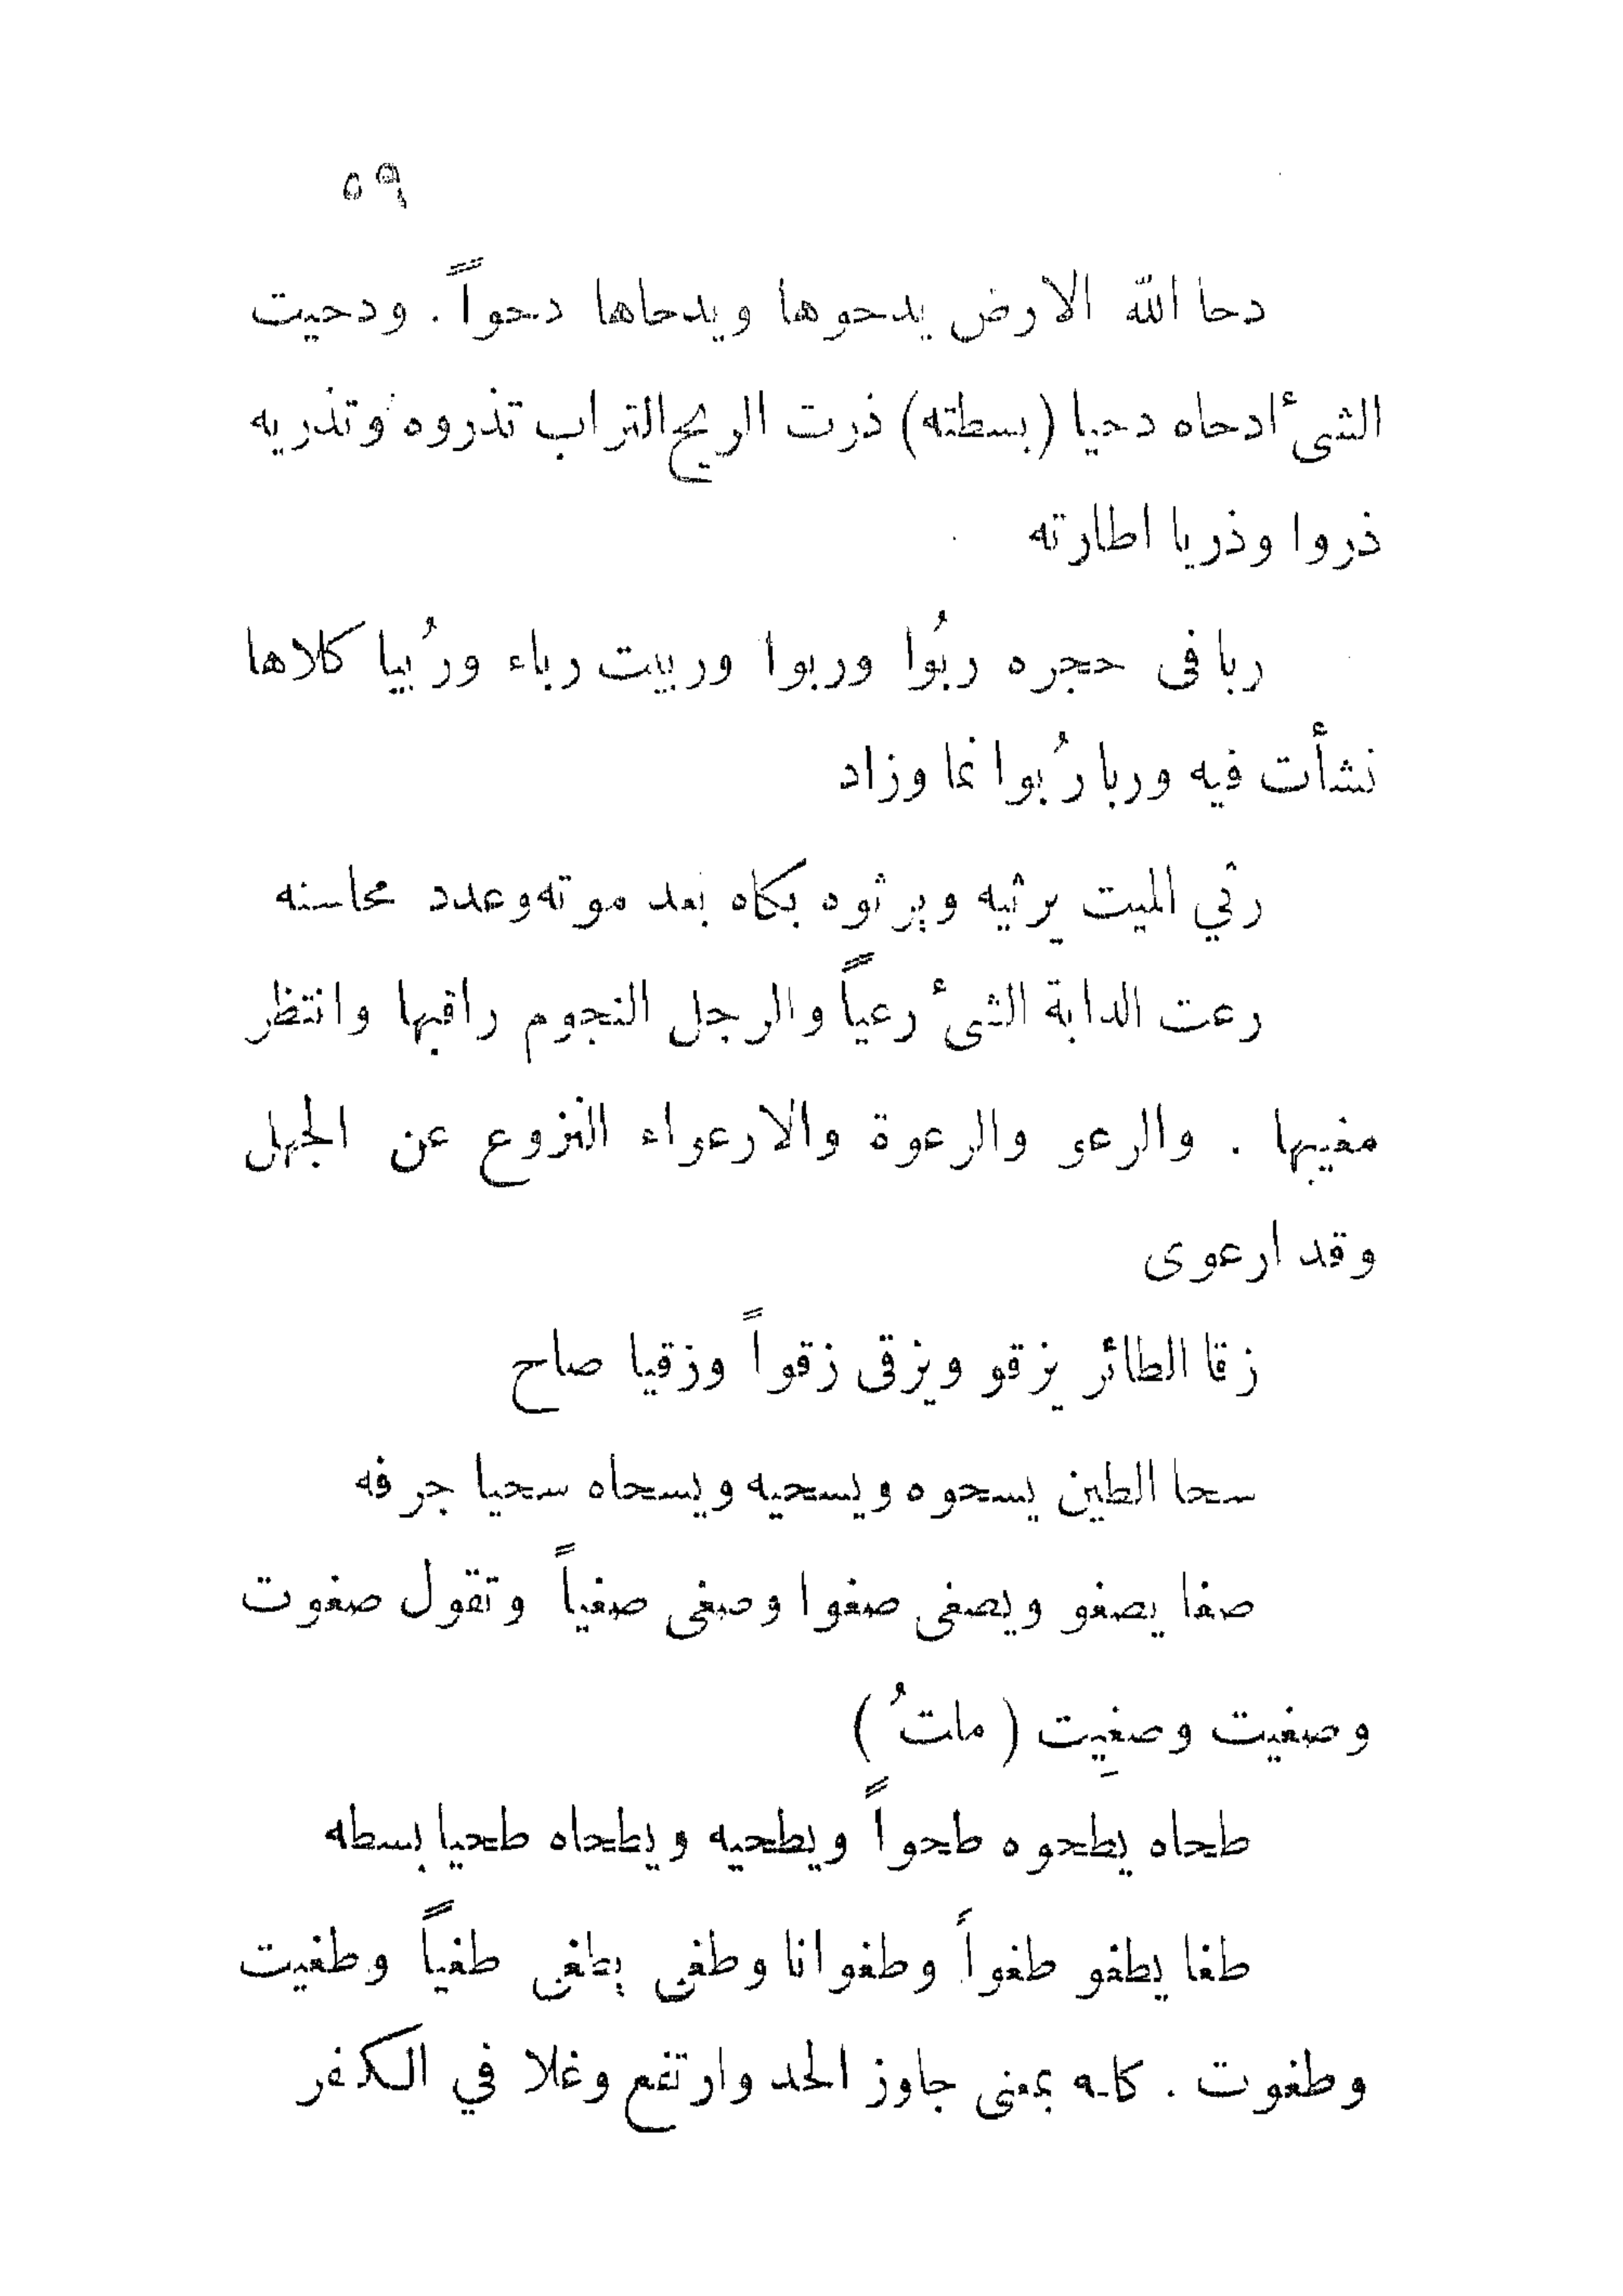 ٥٩
دحا الله الارض يدحوها ويدحاها دحواً . ودحيت
الشئ ادحاه دحيا (بسطته) ذرت الريح التراب تذروه وتذريه
ذروا وذريا اطارته
ربا فى حجره ربُوا وربوا وربيت رباء ورُبيا كلاها
نشأت فيه وربا رُبوا نما وزاد
رثي الميت يرثيه ويرثوه بكاه بعد موته وعدد محاسنه
رعت الدابة الشئ رعياً والرجل النجوم راقبها وانتظر
مغيبها . والرعو والرعوة والارعواء النزوع عن الجهل
وقد ارعوى
زقا الطائر يزقو ويزقى زقواً وزقيا صاح
سحا الطين يسحوه ويسحيه ويسحاه سحيا جرفه
صغا يصغو ويصغى صغوا وصغى صغياً وتقول صغوت
وصغيت وصغِيت ( ملتُ )
طحاه يطحوه طحواً ويطحيه ويطحاه طحيا بسطه
طغا يطغو طغواً وطغوانا وطغى يطغى طغياً وطغيت
وطغوت . كله بمعنى جاوز الحد وارتفع وغلا في الكفر